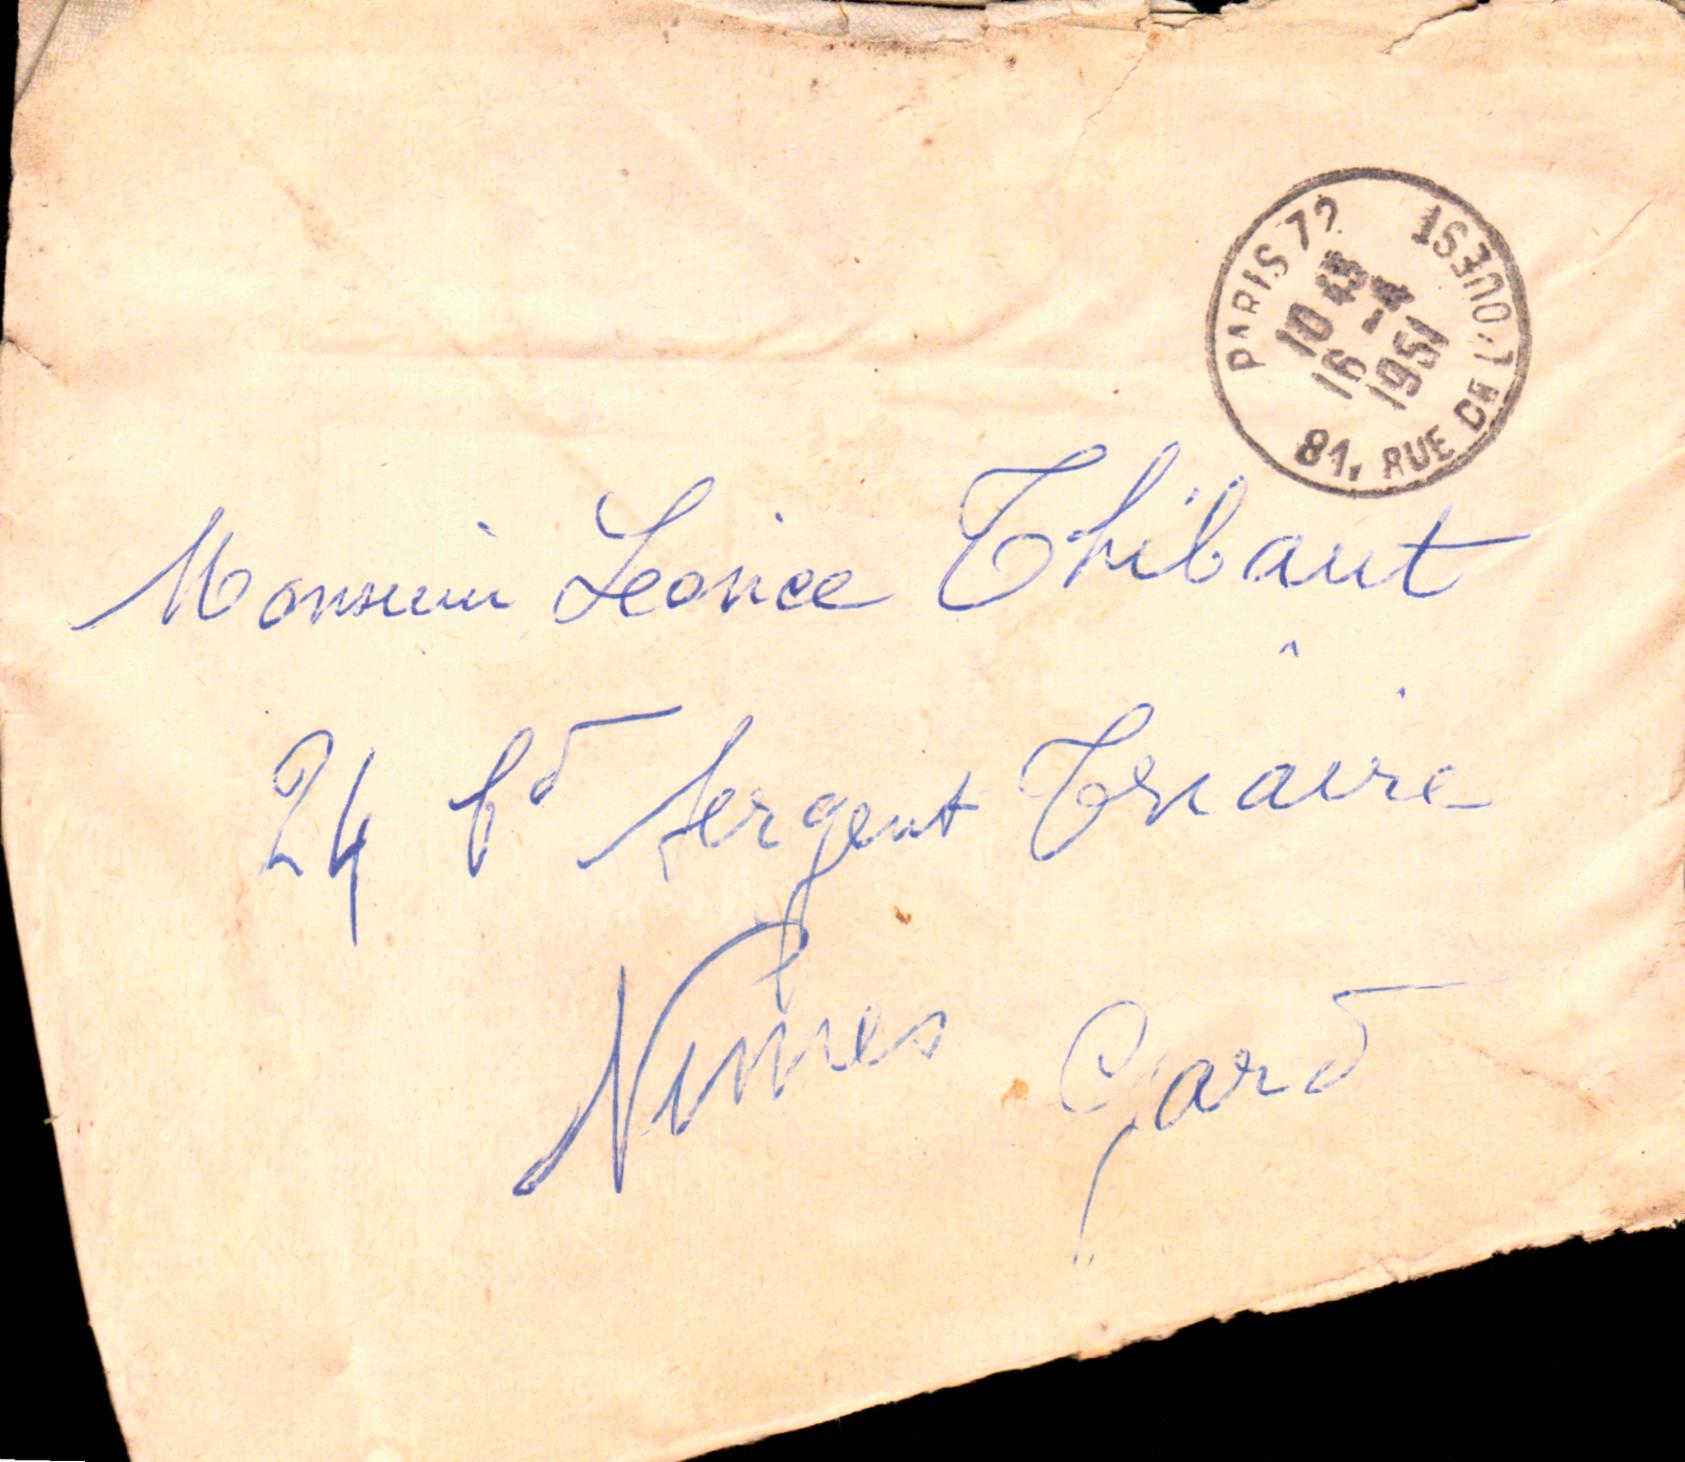 PARIS 72
10 45
16 -4
1951
81, RUE DE L'OUEST
Monsieur Leonce Thibaut
24 bd Sergent Triaire
Nimes Gard